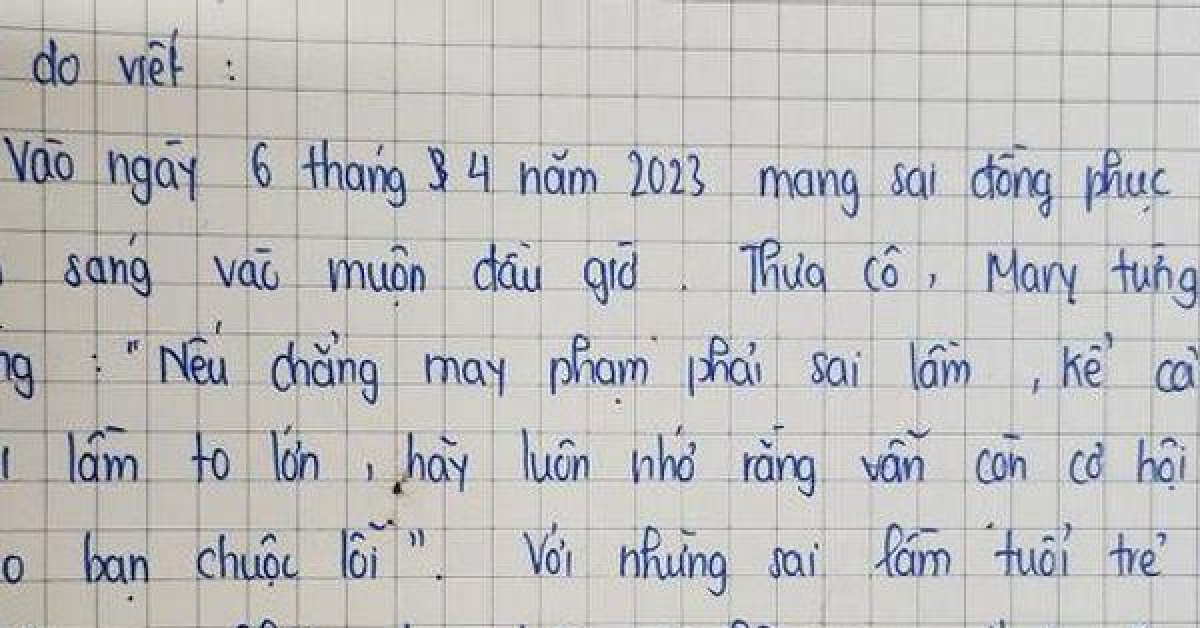 do viết :
Vào ngày 6 tháng 4 năm 2023 mang sai đồng phục
sáng vào muộn đầu giờ . Thưa cô , Mary từng
: "Nếu chẳng may phạm phải sai lầm , kể cả
lầm to lớn , hãy luôn nhớ rằng vẫn còn cơ hội
bạn chuộc lỗi ". Với những sai lầm tuổi trẻ